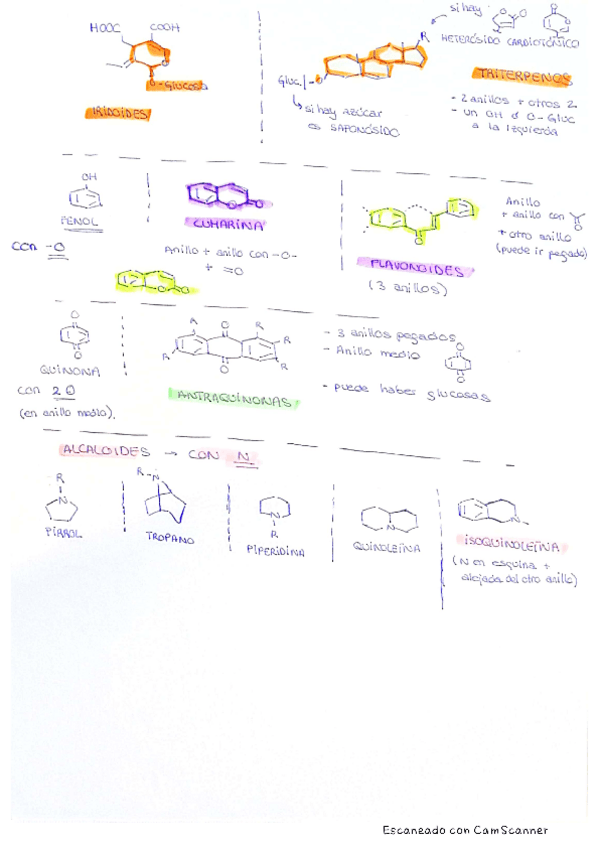 HOOC COOH
O-GLUCOSA
IRIDOIDES
si hay
R
HETERÓSIDO CARDIOTÓNICO
Gluc.
↳ si hay azúcar
es SAPONÓSIDO
TRITERPENOS
- 2 anillos + otros 2
- un OH ó O-Gluc
a la izquierda
OH
FENOL
con -O
CUMARINA
Anillo + anillo con -O-
+ =O
FLAVONOIDES
(3 anillos)
Anillo
+ anillo con
+ otro anillo
(puede ir pegado)
O
O
QUINONA
con 2 O
(en anillo medio).
R O R
R R
O R
ANTRAQUINONAS
- 3 anillos pegados
- Anillo medio
- puede haber glucosas
ALCALOIDES → CON N
R
N
PIRROL
R-N
TROPANO
N
R
PIPERIDINA
N
QUINOLEÍNA
N
ISOQUINOLEÍNA
(N en esquina +
alejada del otro anillo)
Escaneado con CamScanner